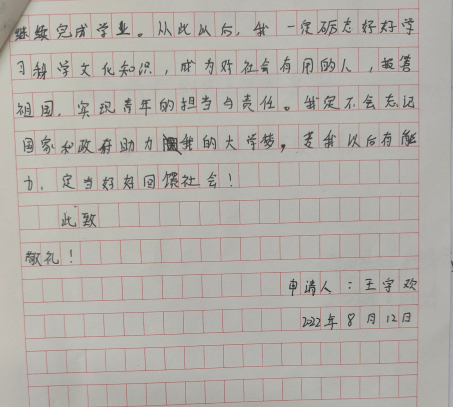 继续完成学业。从此以后，我一定砺志好好学
习科学文化知识，成为对社会有用的人，报答
祖国，实现青年的担当与责任。我定不会忘记
国家和政府助力圆我的大学梦，若我以后有能
力，定当好好回馈社会！
此致
敬礼！
申请人：王宇欢
2022年8月12日